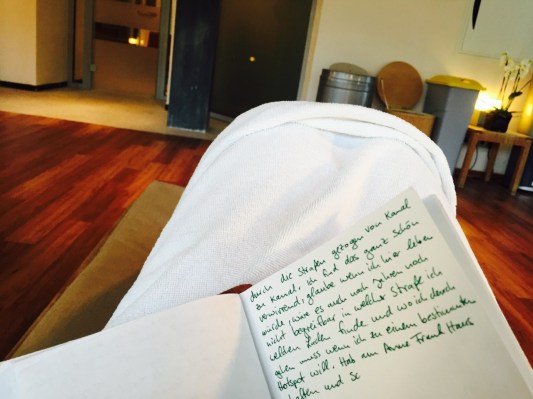 durch die Straßen gezogen vom Kanal
zu Kanal. Ich find das ganz schön
verwirrend, glaube wenn ich hier leben
würde, wäre es auch nach Jahren noch
nicht begreifbar in welcher Straße ich
welchen Laden finde und wo ich durch
gehen muss wenn ich zu einem bestimmten
Hotspot will. Hab am Anne Frank Haus
und